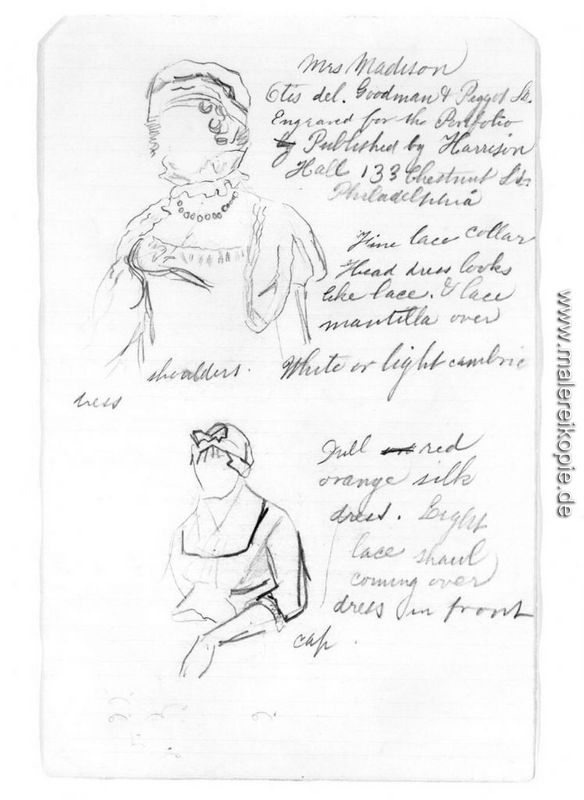 Mrs Madison
Otis del. Goodman & Piggot Sc.
Engraved for the Portfolio
by Published by Harrison
Hall 133 Chestnut St.
Philadelphia
Fine lace collar
Head dress looks
like lace. & lace
mantilla over
shoulders. White or light cambric
dress
Full red
orange silk
dress. Light
lace shawl
coming over
dress in front
cap.
www.malereikopie.de